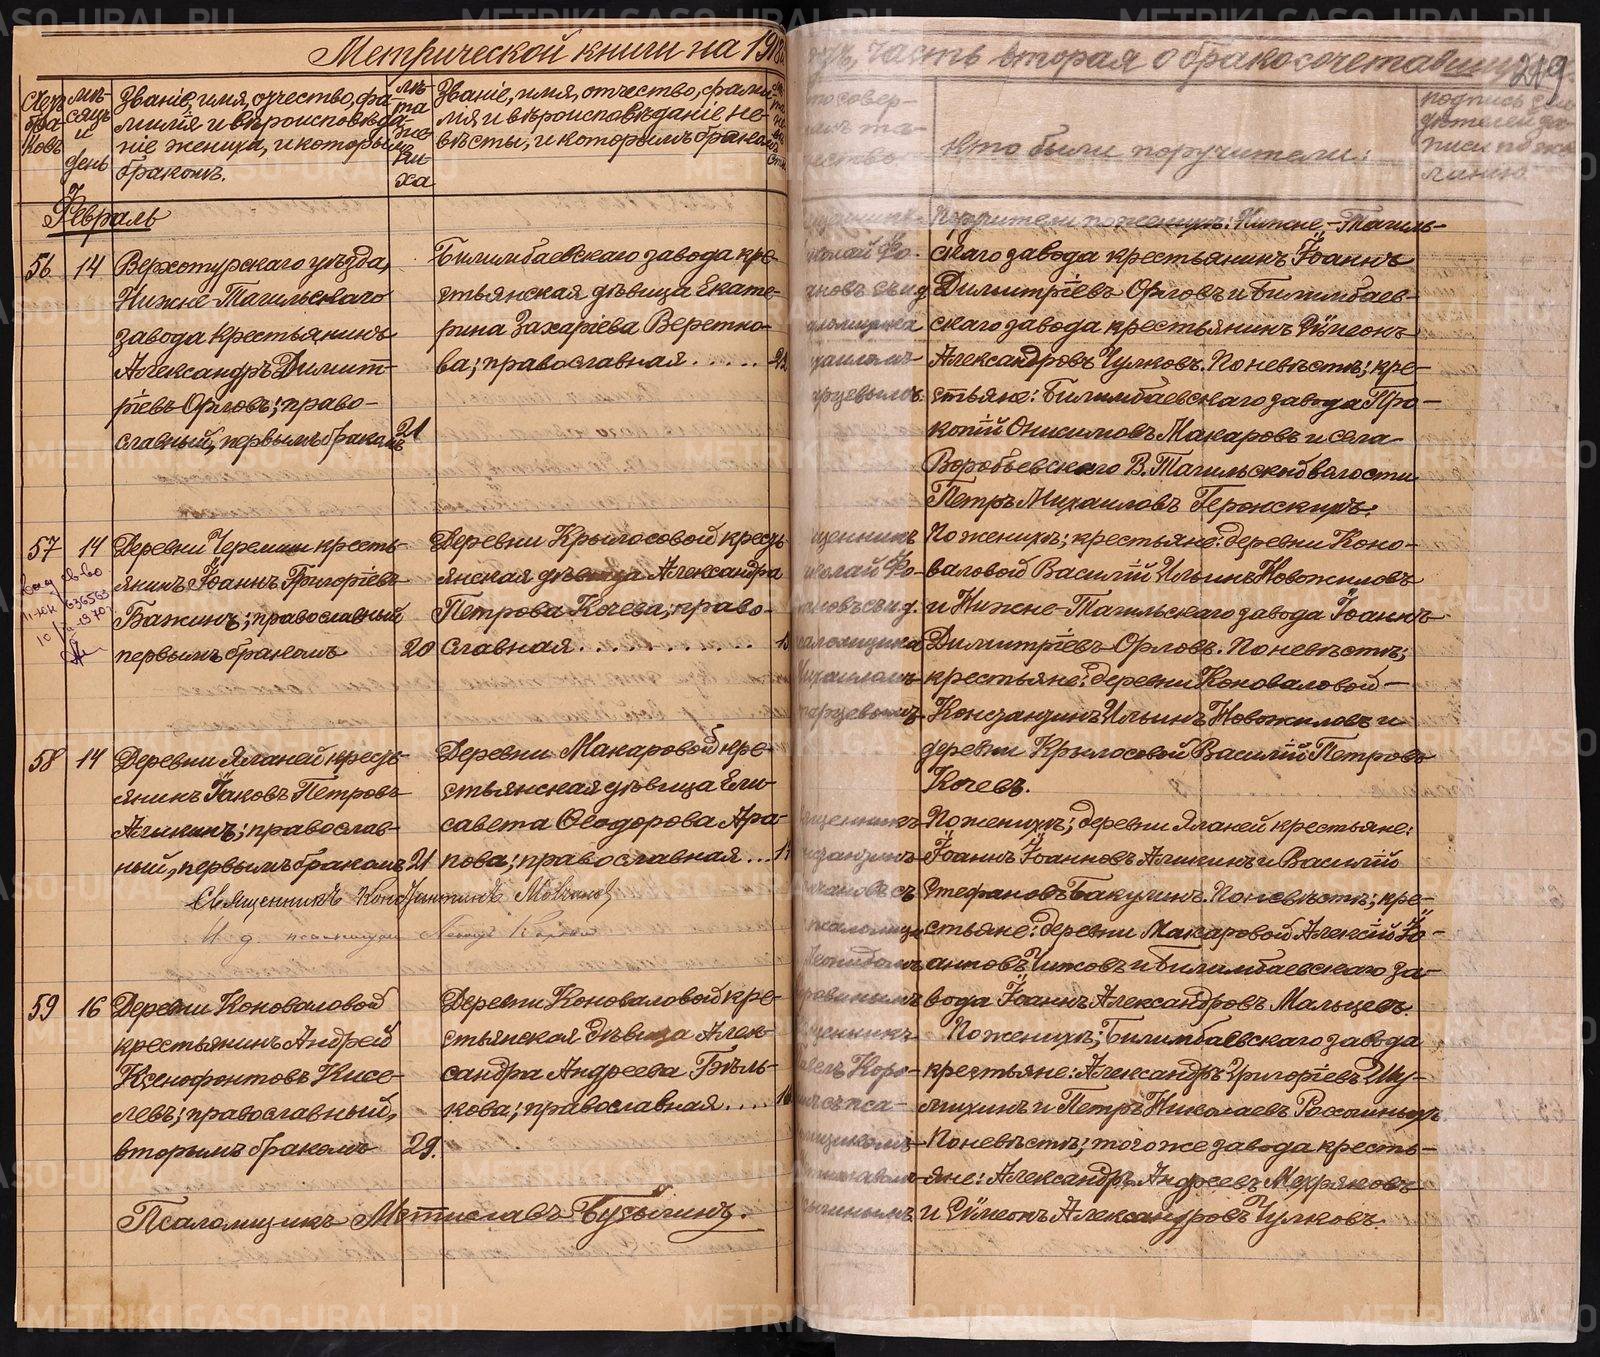 Метрической книги на 1918
годъ, часть вторая о бракосочетавшихся.
219
Счетъ браковъ
мѣсяцъ и день
Званіе, имя, отчество, фа-
милія и вѣроисповѣда-
ніе жениха, и которымъ
бракомъ.
лѣта жениха
Званіе, имя, отчество, фами-
лія и вѣроисповѣданіе не-
вѣсты, и которымъ бракомъ
Кто были поручители:
подпись сви-
дѣтелей за-
писи по же-
ланію
Февраль
56
14
Верхотурскаго уѣзда,
Нижне-Тагильскаго
завода крестьянинъ
Александръ Димит-
ріевъ Орловъ; право-
славный, первымъ бракомъ
21
Билимбаевскаго завода кре-
стьянская дѣвица Екате-
рина Захаріева Веретно-
ва; православная . . . . .
22
Поручители по женихѣ: Нижне-Тагиль-
скаго завода крестьянинъ Іоаннъ
Димитріевъ Орловъ и Билимбаев-
скаго завода крестьянинъ Сѵмеонъ
Александровъ Чулковъ. По невѣстѣ; кре-
стьяне: Билимбаевскаго завода Про-
копій Онисимовъ Макаровъ и села
Воробьевскаго В. Тагильской волости
Петръ Михаиловъ Геронскихъ.
57
14
Деревни Черемши кресть-
янинъ Іоаннъ Григоріевъ
Бажинъ; православный
первымъ бракомъ
20
Деревни Крылосовой кресть-
янская дѣвица Александра
Петрова Кочева; право-
славная . . . .
По женихѣ; крестьяне: деревни Коно-
валовой Василій Ильинъ Новожиловъ
и Нижне-Тагильскаго завода Іоаннъ
Димитріевъ Орловъ. По невѣстѣ;
крестьяне: деревни Коноваловой
Константинъ Ильинъ Новожиловъ и
деревни Крылосовой Василій Петровъ
Кочевъ.
58
14
Деревни Яланей кресть-
янинъ Іаковъ Петровъ
Аликинъ; православ-
ный, первымъ бракомъ
21
Деревни Макаровой кре-
стьянская дѣвица Ели-
савета Ѳеодорова Ара-
пова; православная ...
По женихѣ; деревни Яланей крестьяне:
Іоаннъ Іоанновъ Аликинъ и Василій
Стефановъ Бакулинъ. По невѣстѣ; кре-
стьяне: деревни Макаровой Алексій Іо-
анновъ Чижовъ и Билимбаевскаго за-
вода Іоаннъ Александровъ Мальцевъ.
Священникъ Константинъ
И. д. псаломщика
59
16
Деревни Коноваловой
крестьянинъ Андрей
Ксенофонтовъ Кисе-
левъ; православный,
вторымъ бракомъ
29.
Деревни Коноваловой кре-
стьянская дѣвица Алек-
сандра Андреева Бѣль-
кова; православная ....
По женихѣ; Билимбаевскаго завода
крестьяне: Александръ Григоріевъ Шу-
михинъ и Петръ Николаевъ Рассошныхъ.
По невѣстѣ; того же завода кресть-
яне: Александръ Андреевъ Мехряковъ
и Сѵмеонъ Александровъ Чулковъ.
Псаломщикъ Мстиславъ Бусыгинъ.
METRIKI.GASO-URAL.RU